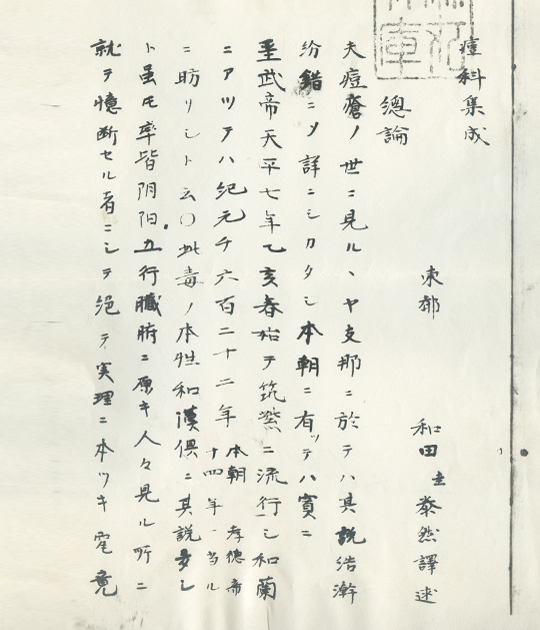 痘科集成
東都 和田 泰然譯述
總論
夫痘瘡ノ世ニ見ル丶ヤ支那ニ於テハ其説浩瀚
紛錯ニメ詳ニシカタシ本朝ニ有ッテハ實ニ
聖武帝天平七年乙亥春始テ筑紫ニ流行シ和蘭
ニアツテハ紀元千六百二十二年 本朝孝德帝十四年当ル
ニ昉リシト云〇此毒ノ本性和漢倶ニ其説多シ
ト虽モ率皆阴阳五行臓腑ニ原キ人々見ル所ニ
就テ憶断セル者ニシテ絶テ実理ニ本ツキ竟